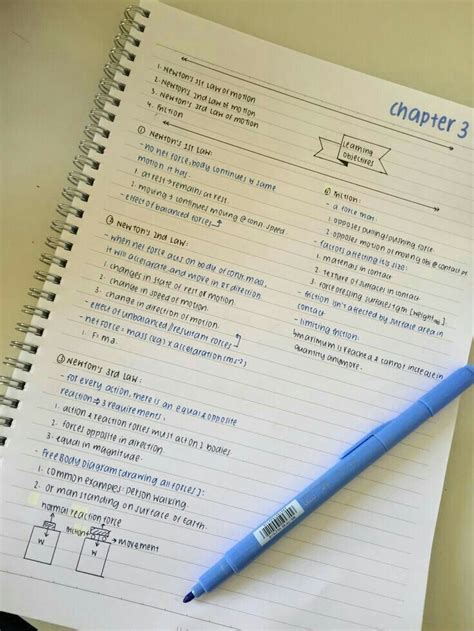 chapter 3
1. Newton's 1st Law of motion
2. Newton's 2nd Law of motion
3. Newton's 3rd Law of motion
4. friction
Learning
Objectives
① Newton's 1st Law:
- no net force, body continues same
motion it has.
1. at rest → remains at rest.
2. moving → continues moving @ const. speed.
- effect of balanced forces
② Newton's 2nd Law:
- when net force acts on body of const mass,
it will accelerate and move in its direction.
1. changes in state of rest of motion.
2. change in speed of motion.
3. change in direction of motion.
- effect of unbalanced/resultant forces
- net force = mass (kg) x acceleration (ms-2)
1. F = ma
③ Newton's 3rd Law:
- for every action, there is an equal & opposite
reaction → 3 requirements:
1. action & reaction forces must act on 2 bodies.
2. forces opposite in direction.
3. equal in magnitude.
- Free Body Diagram (drawing all forces):
1. common examples: person walking.
2. or man standing on surface of Earth.
normal reaction force
friction
→ movement
W
W
④ friction:
- a force that:
1. opposes pulling/pushing force.
2. opposes motion of moving obj @ contact
- factors affecting its size:
1. materials in contact
2. texture of surface in contact
3. force pressing surfaces tgth [weight]
- friction isn't affected by surface area in
contact
- limiting friction:
maximum is reached & cannot increase in
quantity anymore.